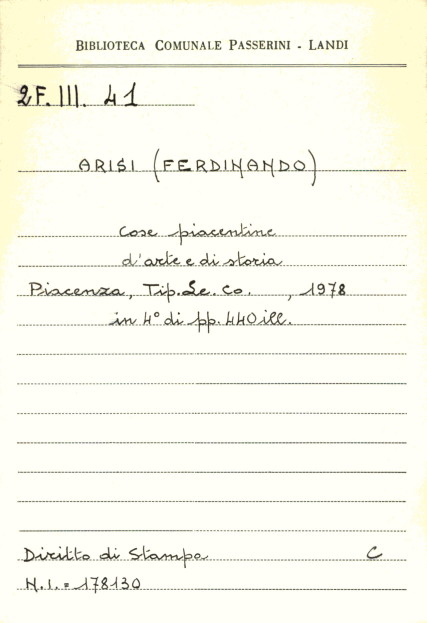 BIBLIOTECA COMUNALE PASSERINI - LANDI
2F. III. 41
ARISI (FERDINANDO)
Cose piacentine
d'arte e di storia
Piacenza, Tip. Le. Co. , 1978
in 4° di pp. 440 ill.
Diritto di Stampa C
N.I. = 178130